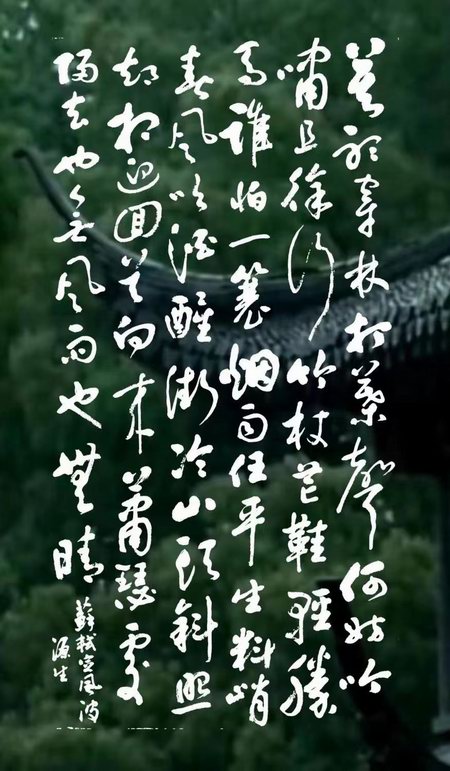 莫聽穿林打葉聲何妨吟
嘯且徐行竹杖芒鞋輕勝
馬誰怕一蓑烟雨任平生料峭
春風吹酒醒微冷山頭斜照
却相迎回首向來蕭瑟處
歸去也无風雨也無晴
蘇軾定風波
源生